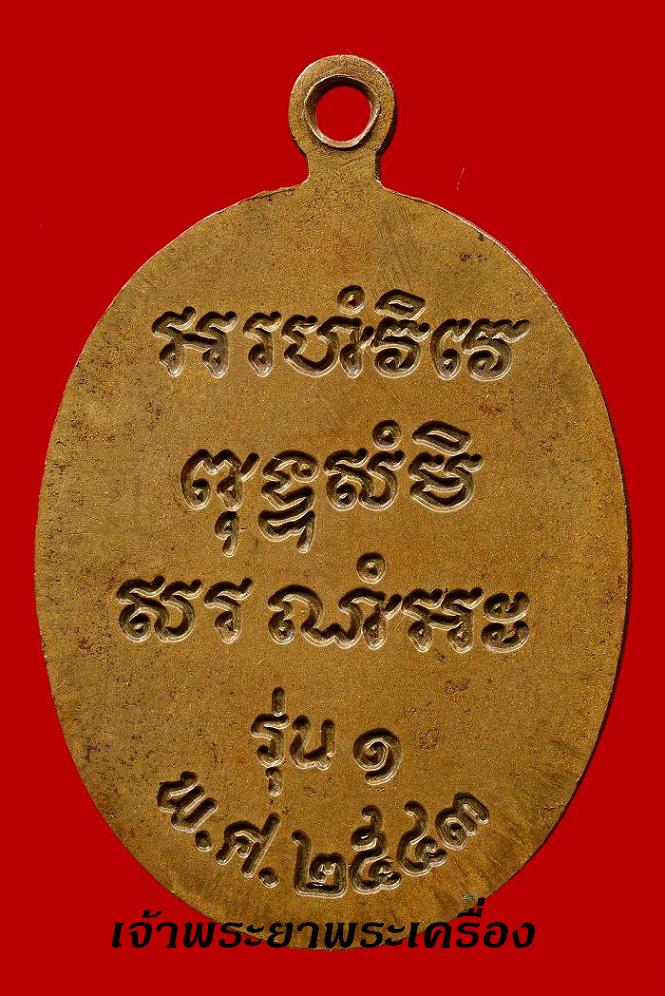 អរហំ
ពុទ្ធសំ
សរណំអះ
รุ่น ๑
พ.ศ. ๒๕๔๓
เจ้าพระยาพระเครื่อง